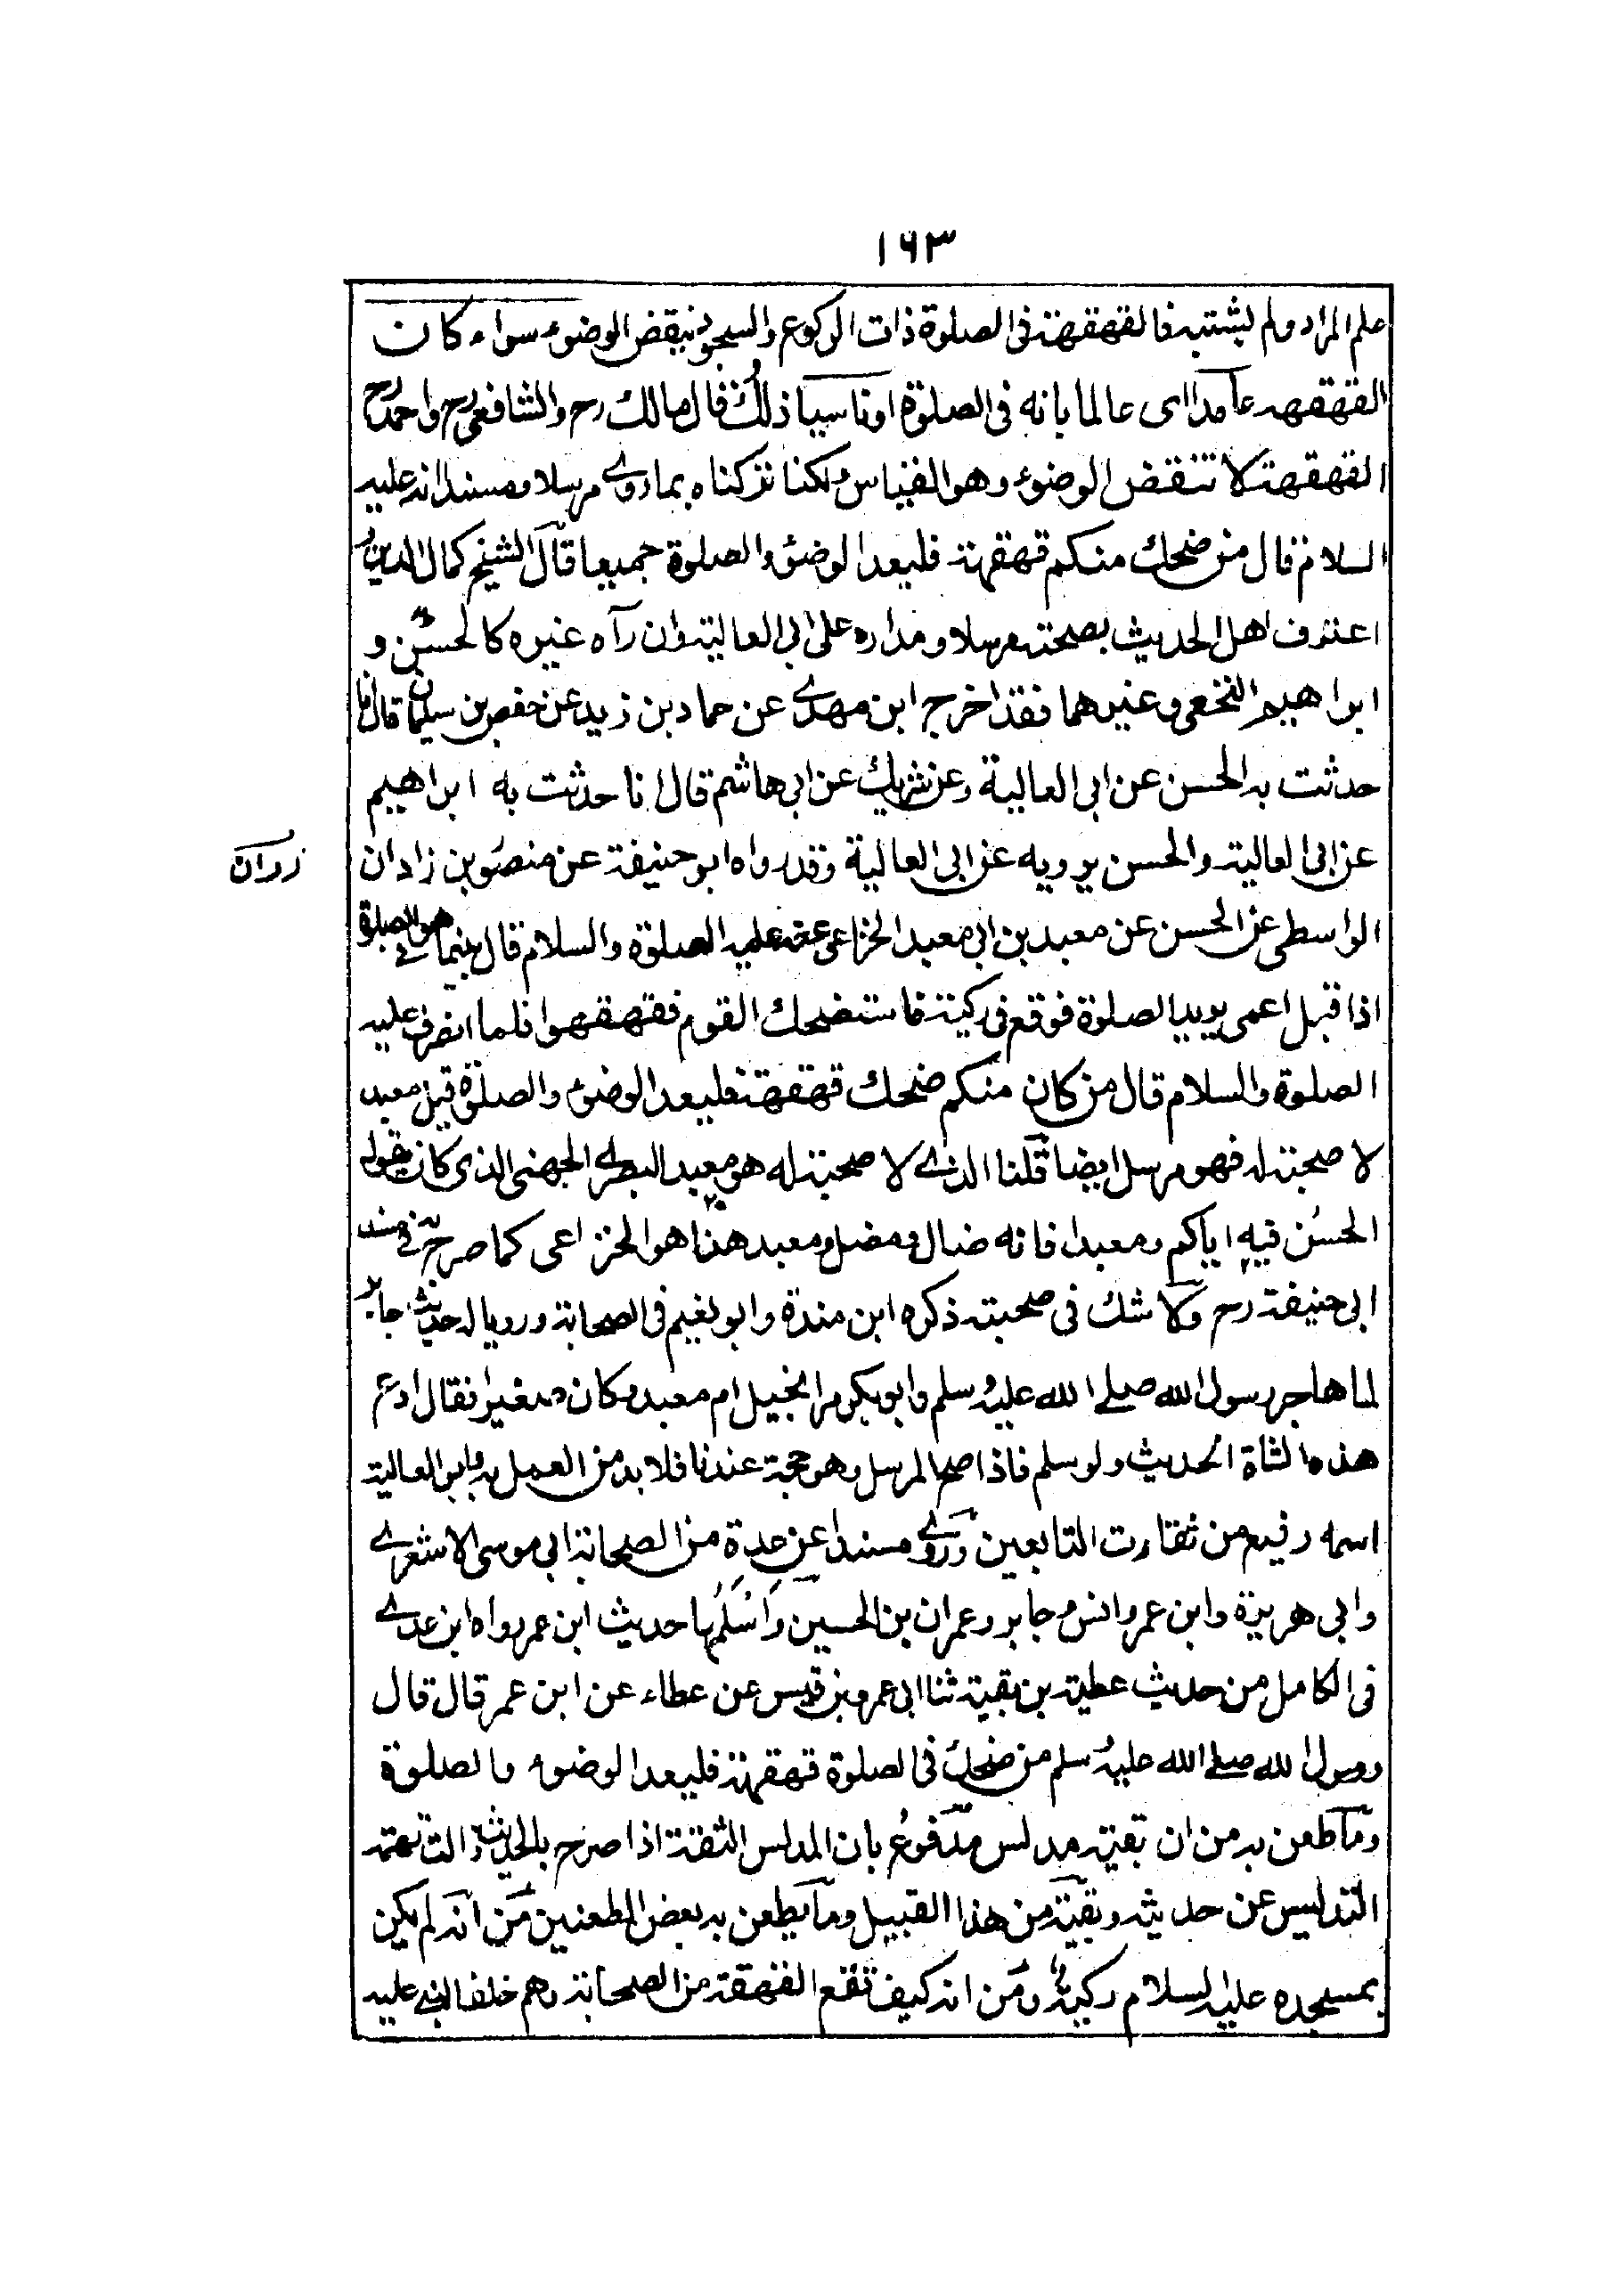 ١٦٣
علم المراد ولم يشتبه فالقهقهة فى الصلوة ذات الركوع والسجود ينقض الوضوء سواء كان
القهقهه عامدا اى عالما بانه فى الصلوة او ناسيا ذلك فقال مالك رح والشافعى رح واحمد رح
القهقهة لا تنقض الوضوء وهو القياس ولكنا تركناه بما روے مرسلا ومسندا انه عليه
السلام قال من ضحك منكم قهقهة فليعد الوضوء والصلوة جميعا قال الشيخ كمال الدين
اعترف اهل الحديث بصحته مرسلا ومداره على ابى العالية وان رآه غيره كالحسن و
ابراهيم النخعى وغيرهما فقد اخرج ابن مهدے عن حماد بن زيد عن حفص بن سليمان قال انا
حدثت به الحسن عن ابى العالية وعن شريك عن ابى هاشم قال انا حدثت به ابراهيم
عن ابى العالية والحسن يرويه عن ابى العالية وقد رواه ابو حنيفة عن منصور بن زادان
زوران
الواسطى عن الحسن عن معبد بن ابى معبد الخزاعى عنه عليه الصلوة والسلام قال بينما هو فے الصلوة
اذا قبل اعمى يريد الصلوة فوقع فى ركية فاستضحك القوم فقهقهوا فلما انصرف عليه
الصلوة والسلام قال من كان منكم ضحك قهقهة فليعد الوضوء والصلوة قيل معبد
لا صحبة له فهو مرسل ايضا قلنا الذے لا صحبة له هو معبد البصرے الجهنى الذى كان يقول
الحسن فيه اياكم ومعبدا فانه ضال ومضل ومعبد هذا هو الخزاعى كما صرح به فے مسند
ابى حنيفة رح ولا شك فى صحبته ذكره ابن مندة وابو نعيم فى الصحابة ورويا له حديث جابر
لما هاجر رسول الله صلے الله عليه وسلم وابو بكر مرا بخيل ام معبد وكان صغيرا فقال ادع
هذه الشاة الحديث ولو سلم فاذا صح المرسل وهو حجة عندنا فلا بد من العمل به وابو العالية
اسمه رفيع من ثقارت التابعين وروے مسندا عن حدة من الصحابة ابى موسى الاشعرے
وابى هريرة وابن عمر وانس وجابر وعمران بن الحسين واسلمها حديث ابن عمر رواه ابن عدے
فى الكامل من حديث عطية بن بقية ثنا ابى عمرو بن قيس عن عطاء عن ابن عمر قال قال
رسول الله صلے الله عليه وسلم من ضحك فى الصلوة قهقهة فليعد الوضوء والصلوة
وما طعن به من ان بقية مدلس مدفوع بان المدلس الثقة اذا صرح بالحديث
التدليس عن حديثه وبقية من هذا القبيل وما يطعن به بعض المطعنين من انه لم يكن
بمسجده عليه السلام ركية ومن انه كيف تقع القهقة من الصحابة وهم خلف النبے عليه